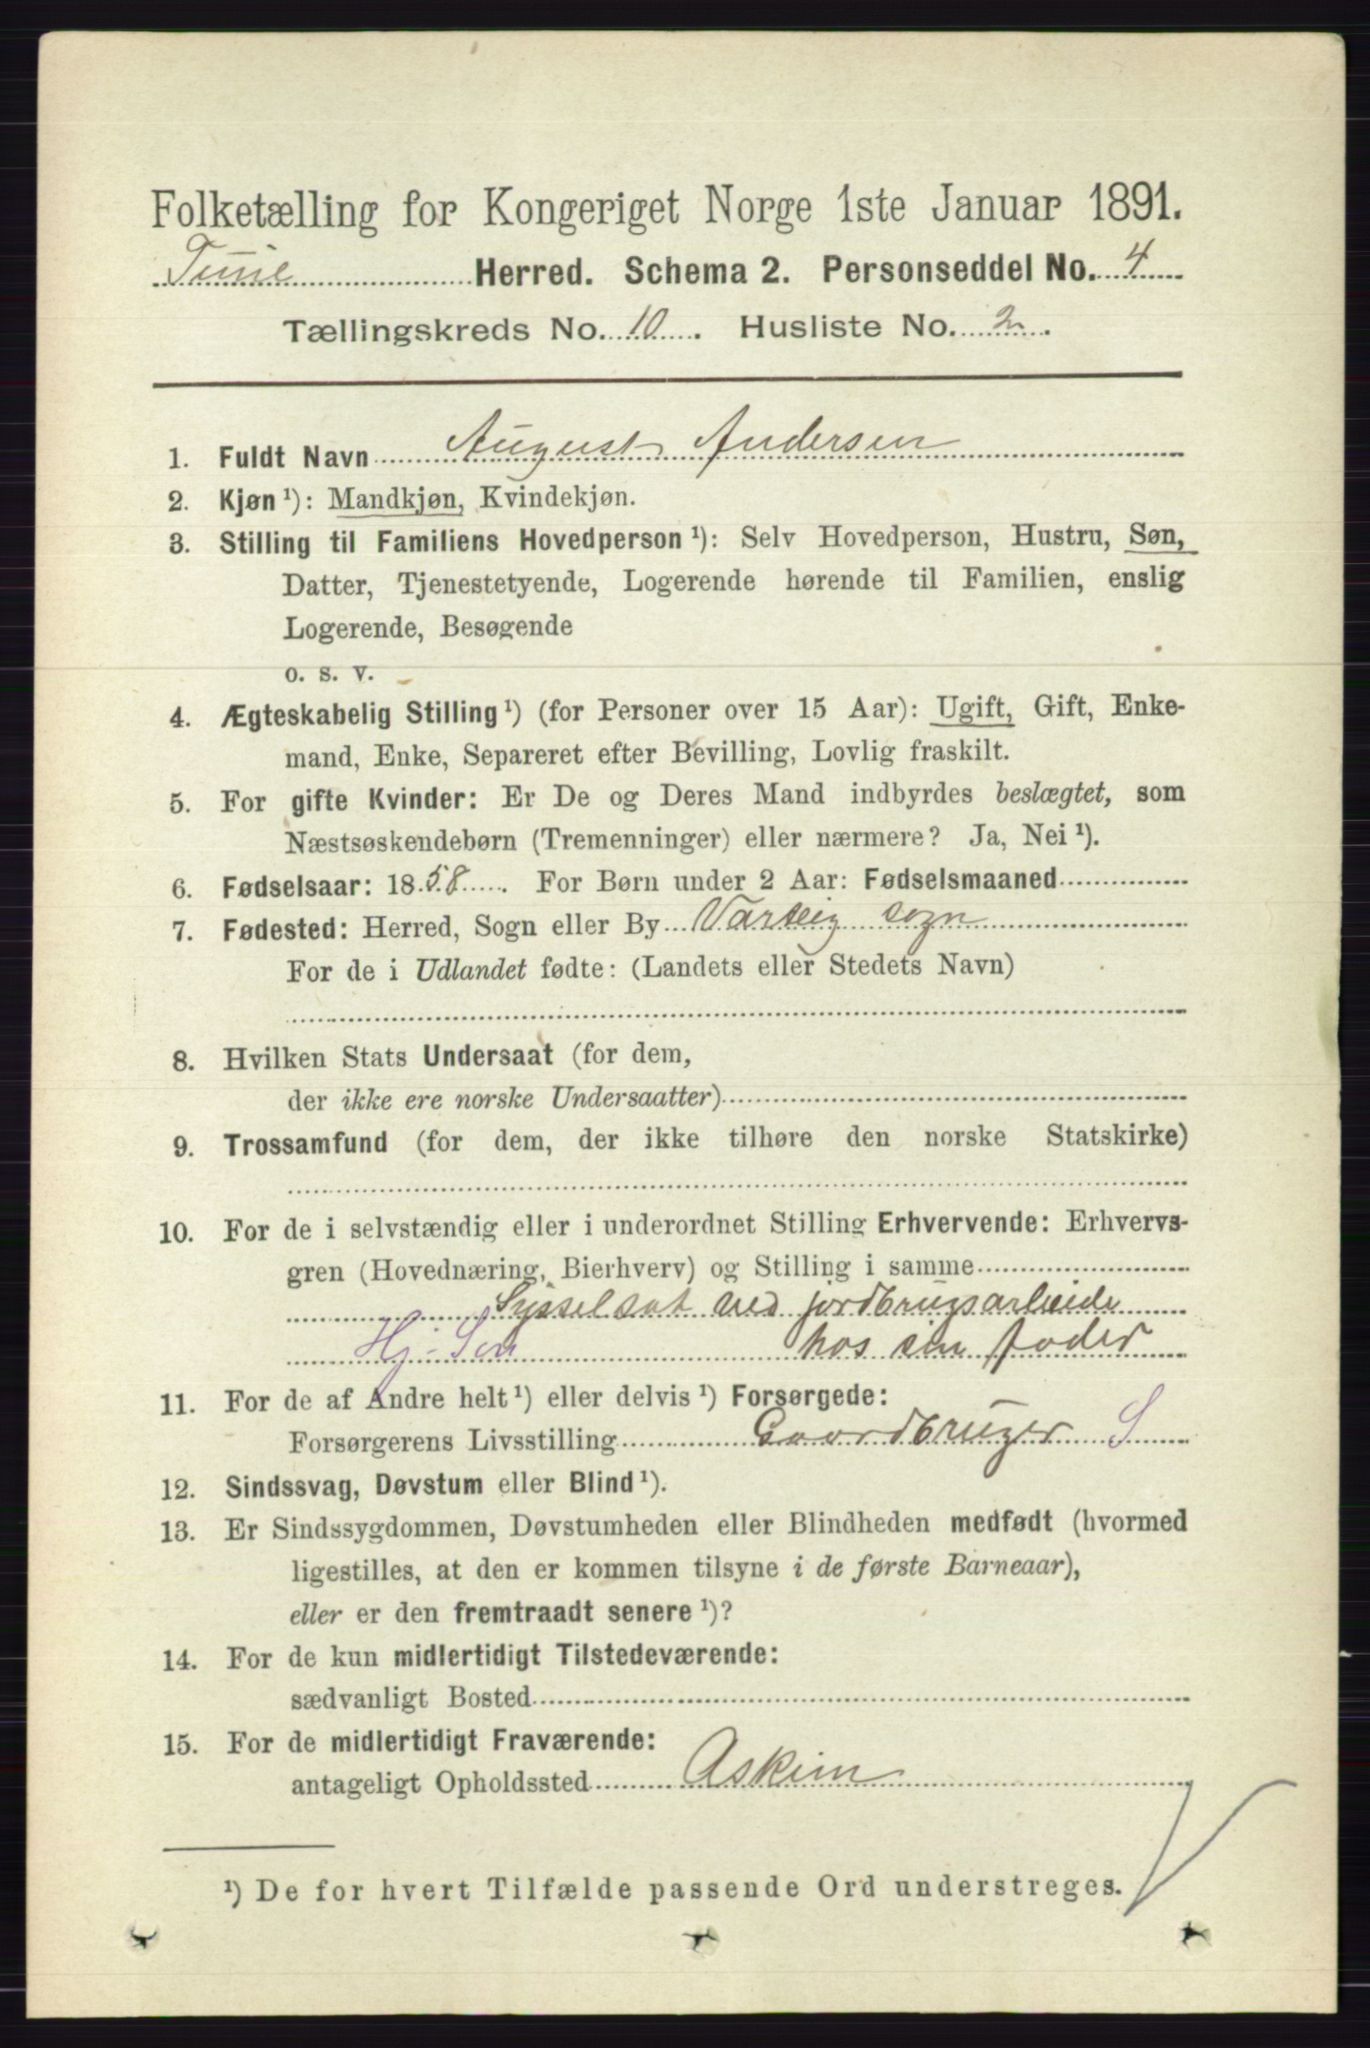 Folketælling for Kongeriget Norge 1ste Januar 1891.
Tune Herred. Schema 2. Personseddel No. 4
Tællingskreds No. 10. Husliste No. 2.
1. Fuldt Navn August Andersen
2. Kjøn ¹): Mandkjøn, Kvindekjøn.
3. Stilling til Familiens Hovedperson ¹): Selv Hovedperson, Hustru, Søn,
Datter, Tjenestetyende, Logerende hørende til Familien, enslig
Logerende, Besøgende
o. s. v.
4. Ægteskabelig Stilling ¹) (for Personer over 15 Aar): Ugift, Gift, Enke-
mand, Enke, Separeret efter Bevilling, Lovlig fraskilt.
5. For gifte Kvinder: Er De og Deres Mand indbyrdes beslægtet, som
Næstsøskendebørn (Tremenninger) eller nærmere? Ja, Nei ¹).
6. Fødselsaar: 1858. For Børn under 2 Aar: Fødselsmaaned
7. Fødested: Herred, Sogn eller By Varteig sogn
For de i Udlandet fødte: (Landets eller Stedets Navn)
8. Hvilken Stats Undersaat (for dem,
der ikke ere norske Undersaatter)
9. Trossamfund (for dem, der ikke tilhøre den norske Statskirke)
10. For de i selvstændig eller i underordnet Stilling Erhvervende: Erhvervs-
gren (Hovednæring, Bierhverv) og Stilling i samme
Sysselsat ved jordbrugsarbeide
Hj. Søn hos sin fader
11. For de af Andre helt ¹) eller delvis ¹) Forsørgede:
Forsørgerens Livsstilling Gaardbruger S
12. Sindssvag, Døvstum eller Blind ¹).
13. Er Sindssygdommen, Døvstumheden eller Blindheden medfødt (hvormed
ligestilles, at den er kommen tilsyne i de første Barneaar),
eller er den fremtraadt senere ¹)?
14. For de kun midlertidigt Tilstedeværende:
sædvanligt Bosted
15. For de midlertidigt Fraværende:
antageligt Opholdssted Askim
¹) De for hvert Tilfælde passende Ord understreges.